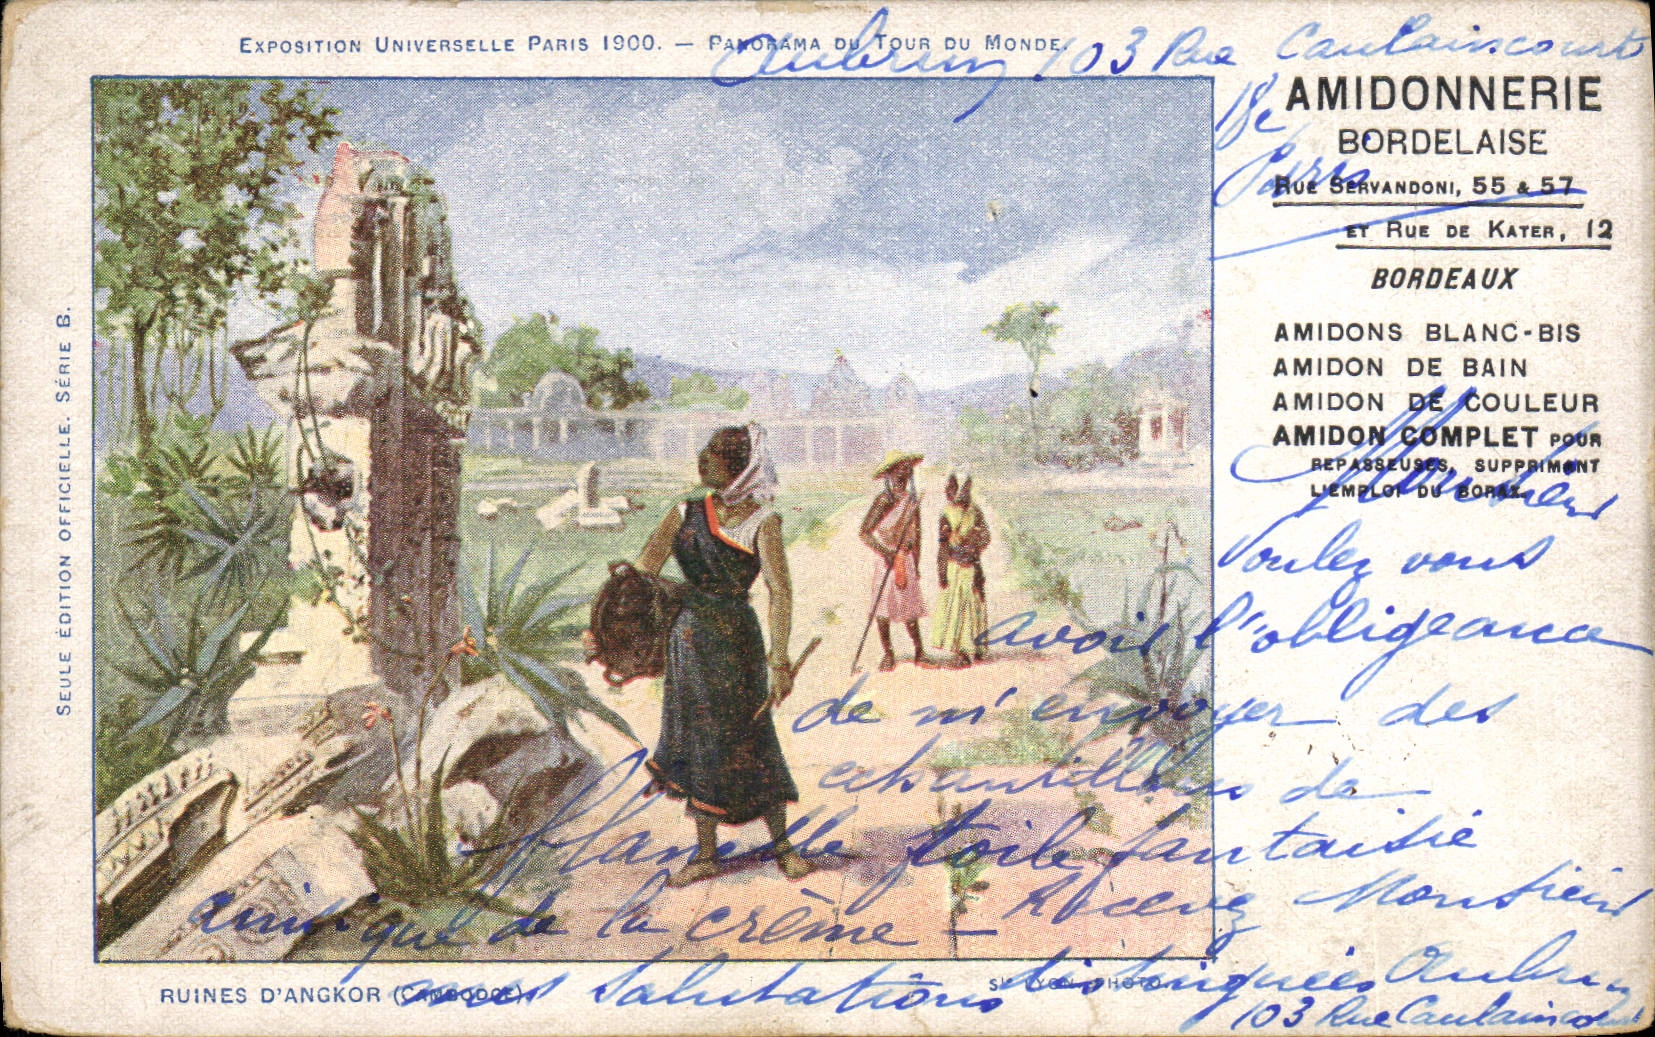 EXPOSITION UNIVERSELLE PARIS 1900. — PANORAMA DU TOUR DU MONDE.
Aubrun 103 Rue Caulaincourt
18e
Paris
AMIDONNERIE
BORDELAISE
RUE SERVANDONI, 55 & 57
ET RUE DE KATER, 12
BORDEAUX
AMIDONS BLANC-BIS
AMIDON DE BAIN
AMIDON DE COULEUR
AMIDON COMPLET POUR
REPASSEUSES, SUPPRIMANT
L'EMPLOI DU BORAX.
SEULE ÉDITION OFFICIELLE. SÉRIE B.
Monsieur
Voulez vous
avoir l'obligeance
de m'envoyer des
echantillons de
flanelle toile fantaisie
ainsi que de la crème — Recevez Monsieur
mes salutations distinguées Aubrun
103 Rue Caulaincourt
RUINES D'ANGKOR (CAMBODGE).
LYON, PHOTO.